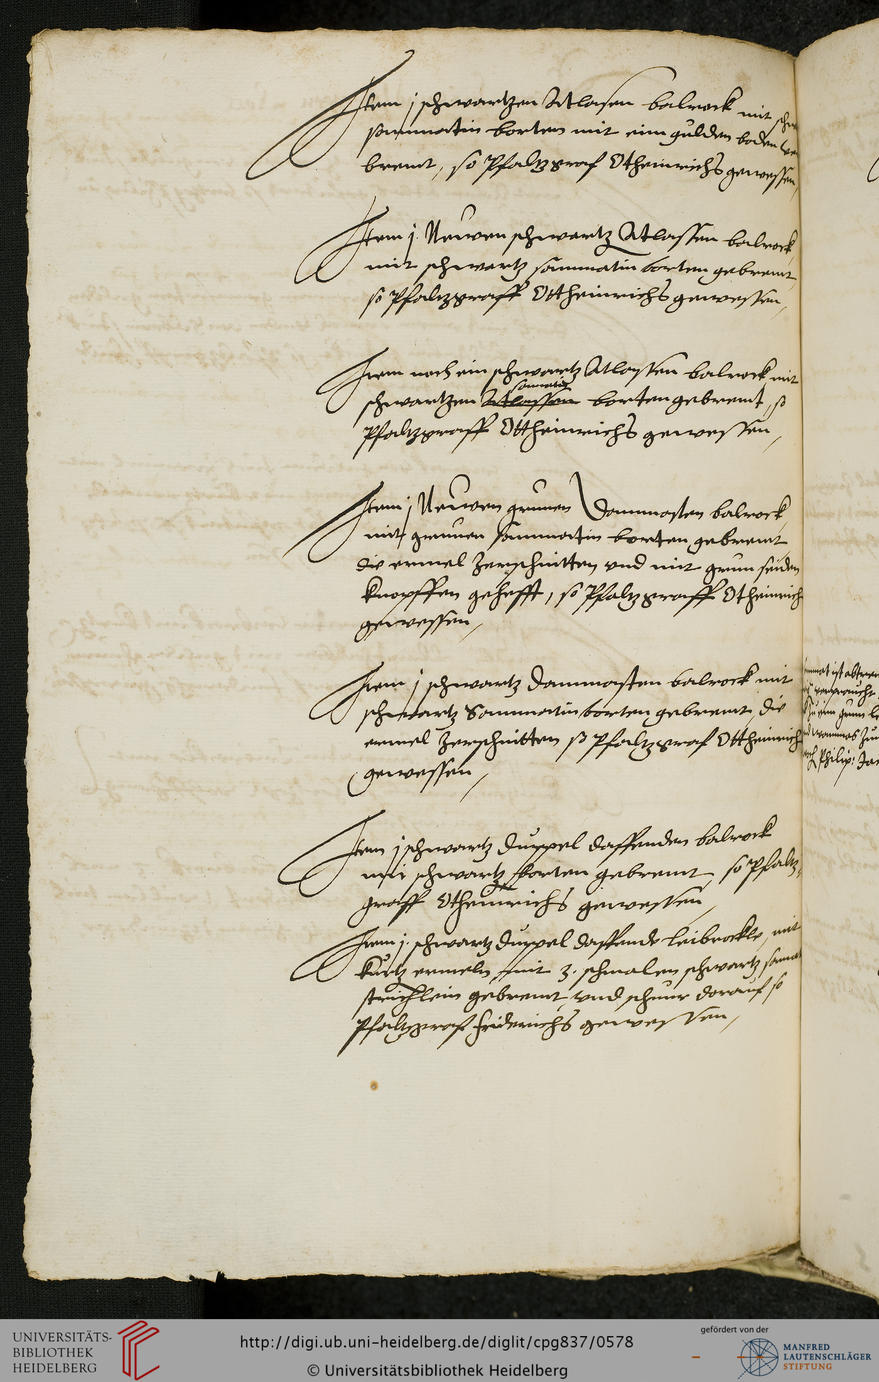 Item j schwartzen Atlasen balrock mit
sammatin borten mit eim gulden boden
bremt, so Pfaltzgraf Otheinrichs gewessen,
Item j. Neuwen schwartz Atlassen balrock
mit schwartz sammatin borten gebremt
so Pfaltzgraff Ottheinrichs gewessen,
Item noch ein schwartz Atlassen balrock mit
sammatin
schwartzen Atlassen borten gebremt, so
Pfaltzgraff Ottheinrichs gewessen,
Item j Neuwen grunen Dammasten balrock
mit grunen sammatin borten gebremt
die ermel zerschnitten und mit grun seiden
knopffen gehefft, so Pfaltzgraff Otheinrich
gewessen,
Item j schwartz dammasten balrock mit
schwartz Sammatin borten gebremt, die
ermel zerschnitten so Pfaltzgraf Ottheinrich
gewessen,
Item j schwartz duppel daffenden balrock
mit schwartz borten gebremt, so Pfaltz
graff Otheinrichs gewessen,
Item j. schwartz duppel daffende leibrockle, mit
kurtz ermeln, mit 3. schmalen schwartz samat
strichlein gebremt, und schnur darauf, so
Pfaltzgraf friderichs gewessen,
Philip:
UNIVERSITÄTS-
BIBLIOTHEK
HEIDELBERG
http://digi.ub.uni-heidelberg.de/diglit/cpg837/0578
© Universitätsbibliothek Heidelberg
gefördert von der
MANFRED
LAUTENSCHLÄGER
STIFTUNG